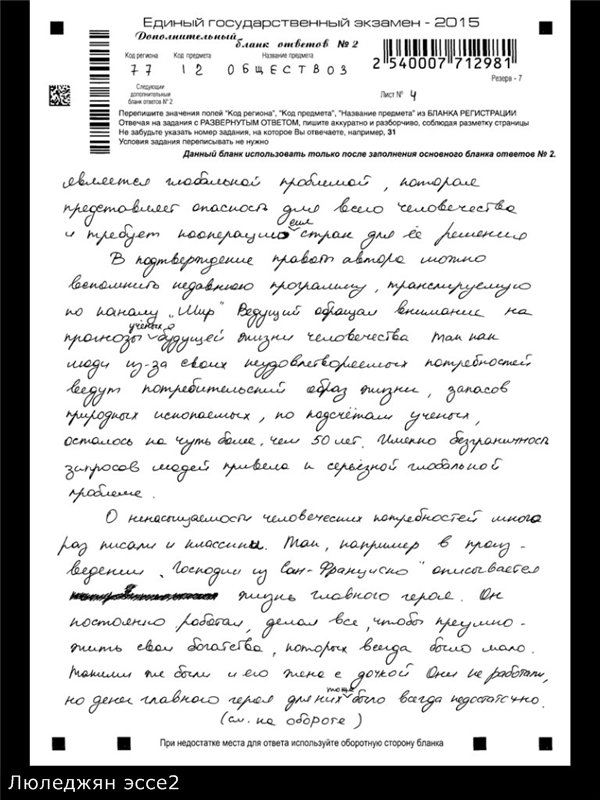 Единый государственный экзамен - 2015
Дополнительный
бланк ответов № 2
Код региона Код предмета Название предмета
77 12 ОБЩЕСТВОЗ
2 540007 712981
Резерв - 7
Следующий
дополнительный
бланк ответов № 2
Лист № 4
Перепишите значения полей "Код региона", "Код предмета", "Название предмета" из БЛАНКА РЕГИСТРАЦИИ
Отвечая на задания с РАЗВЕРНУТЫМ ОТВЕТОМ, пишите аккуратно и разборчиво, соблюдая разметку страницы
Не забудьте указать номер задания, на которое Вы отвечаете, например, 31
Условия задания переписывать не нужно
Данный бланк использовать только после заполнения основного бланка ответов № 2.
является глобальной проблемой, которая
представляет опасность для всего человечества
и требует кооперацию сил стран для её решения
В подтверждение правоты автора можно
вспомнить недавнюю программу, транслируемую
по каналу „Мир" Ведущий обращал внимание на
прогнозы учёных о будущей жизни человечества Так как
люди из-за своих неудовлетворяемых потребностей
ведут потребительский образ жизни, запасов
природных ископаемых, по подсчётам ученых,
осталось на чуть более, чем 50 лет. Именно безграничность
запросов людей привела к серьёзной глобальной
проблеме.
О ненасыщаемости человеческих потребностей много
раз писали и классики. Так, например в произ-
ведении „Господин из Сан-Франциско" описывается
жизнь главного героя. Он
постоянно работал, делал все, чтобы преумно-
жить свои богатства, которых всегда было мало.
Такими же были и его жена с дочкой Они не работали,
но денег главного героя для них тоже было всегда недостаточно.
(см. на обороте)
При недостатке места для ответа используйте оборотную сторону бланка
Люледжян эссе2